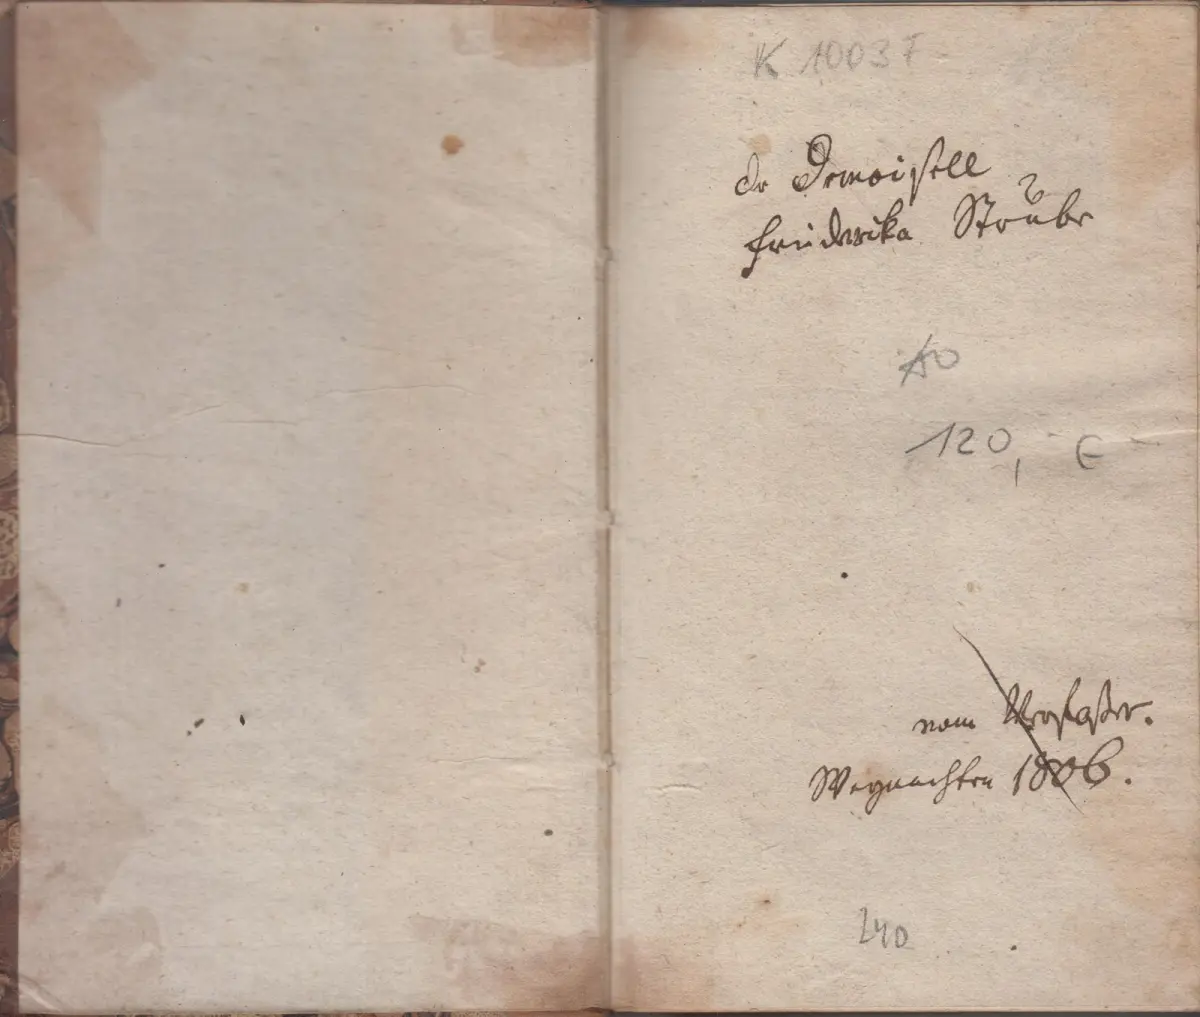 K 1003T
de Demoisell
Friederika Straube
120,- €-
vom Verfasser.
Weynachten 1806.
240